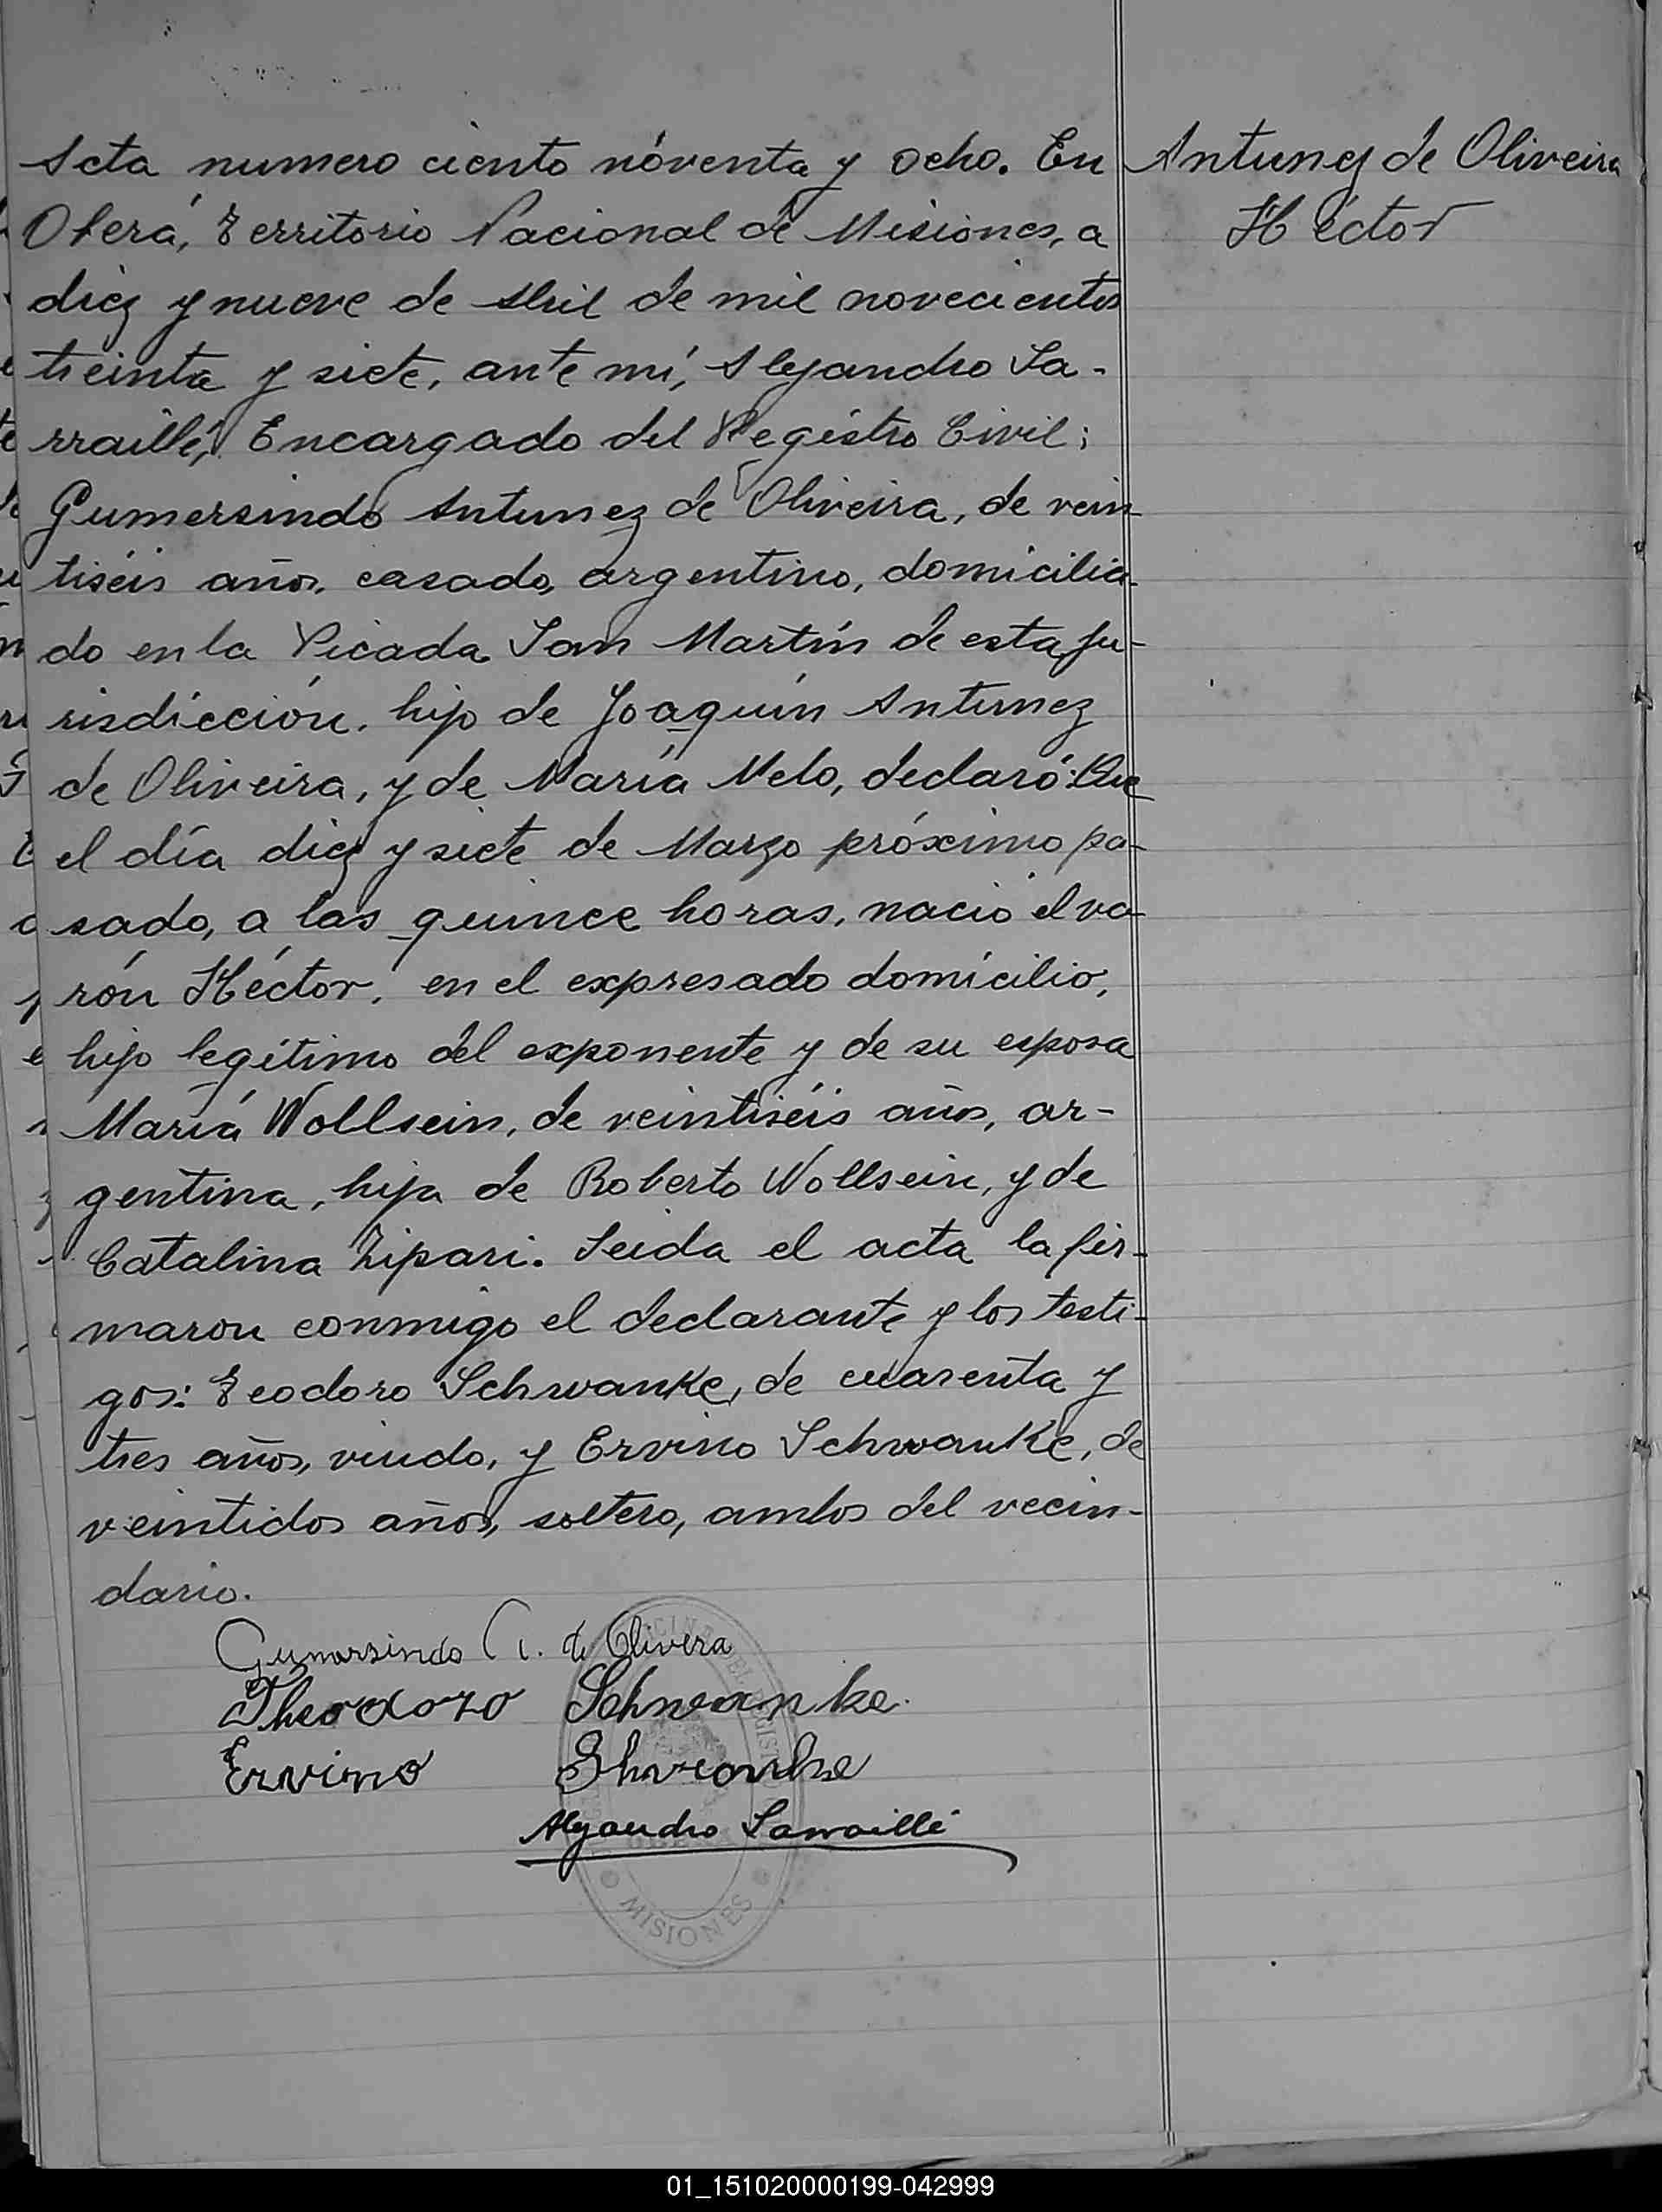 Acta numero ciento nóventa y ocho. En
Oberá, Territorio Nacional de Misiones, a
diez y nueve de Abril de mil novecientos
treinta y siete, ante mí, Alejandro La-
rraillé, Encargado del Registro Civil;
Gumersindo Antunez de Oliveira, de vein-
tiséis años, casado, argentino, domicilia-
do en la Picada San Martín de esta ju-
risdicción, hijo de Joaquín Antunez
de Oliveira, y de María Melo, declaró: Que
el día diez y siete de Marzo próximo pa-
sado, a las quince horas, nació el va-
rón Héctor, en el expresado domicilio,
hijo legítimo del exponente y de su esposa
María Wollsein, de veintiséis años, ar-
gentina, hija de Roberto Wollsein, y de
Catalina Zipari. Leida el acta la fir-
maron conmigo el declarante y los testi-
gos: Teodoro Schwanke, de cuarenta y
tres años, viudo, y Ervino Schwanke, de
veintidos años, soltero, ambos del vecin-
dario.
Antunez de Oliveira
Héctor
Gumarsindo A. de Olivera
Theodoro Schwanke.
Ervino Shwanke
Alejandro Larraillé
MISIONES
01_151020000199-042999